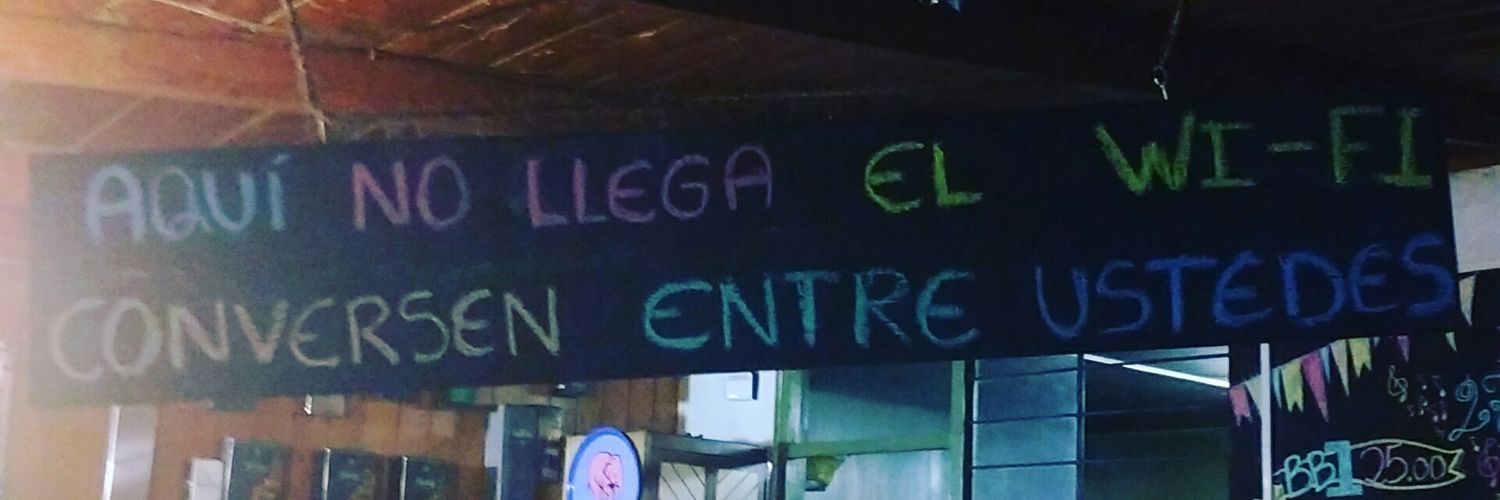 AQUÍ NO LLEGA EL WI-FI
CONVERSEN ENTRE USTEDES
25.00